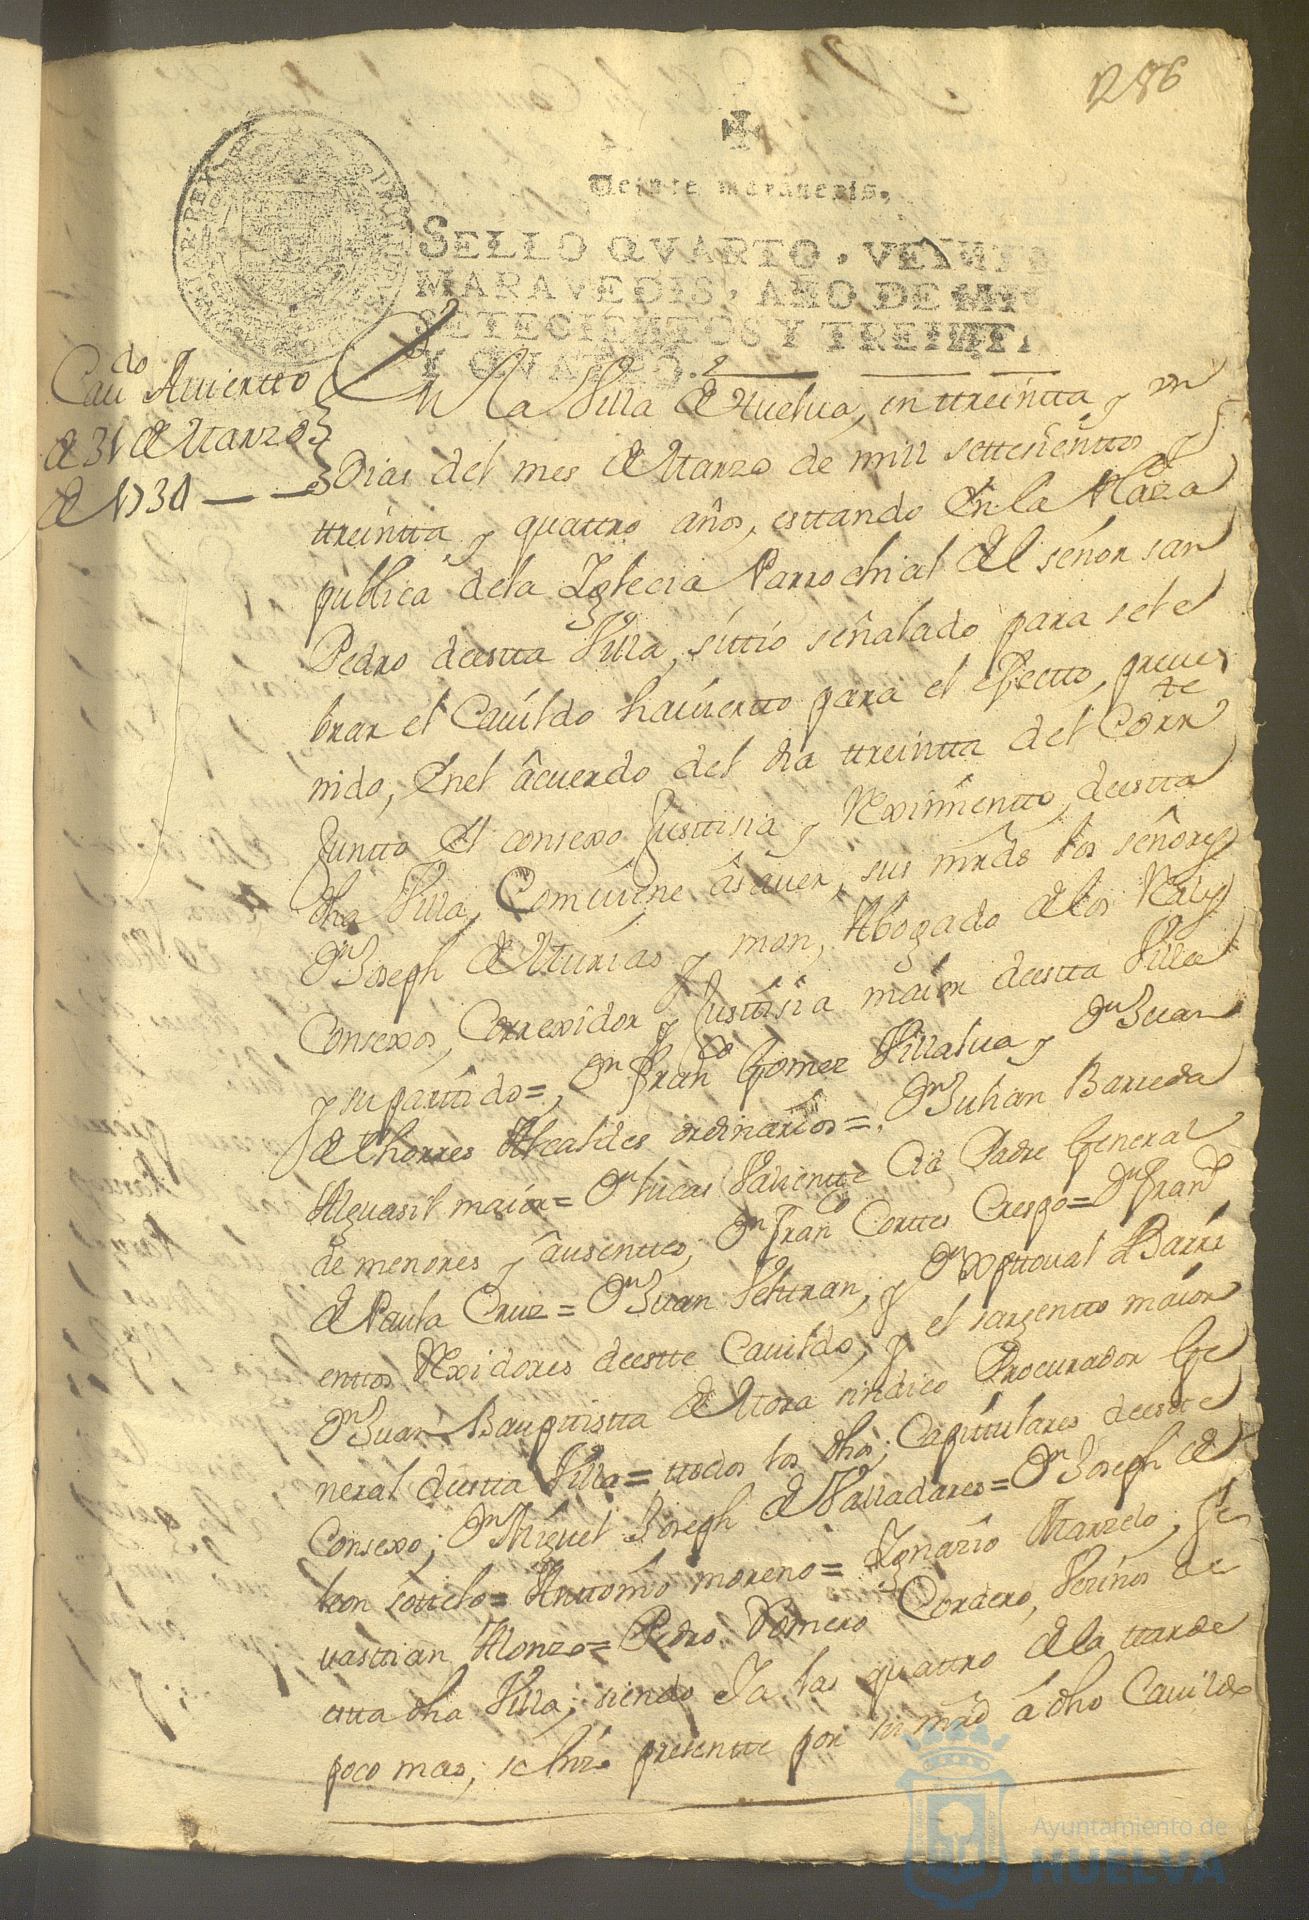 286
Veinte maravedis.
SELLO QVARTO, VEINTE
MARAVEDIS, AÑO DE MIL
SETECIENTOS Y TREINTA
Y QVATRO.
Caudo Auiertto
de 31 de Marzo
de 1734
En la Villa de Huelua, en ttreintta y un
Dias del mes de Marzo de mill settesienttos y
ttreintta y quattro años, esttando En la Plaza
publica dela Yglecia Parrochial del señor san
Pedro deestta Villa, sittio señalado para sele
brar el Cauildo hauiertto para el efectto, preue
nido, Enel acuerdo del dia ttreintta del Corrte
Juntto el consexo Justtisia y Reximientto, deestta
dha Villa, Comuiene âsauer, sus mrds los señores
Dn Joseph de Asturias y mon, Abogado delos Rales
Consexos, Correxidor y Justtisia maior deestta Villa
y su parttido=, Dn Franco Gomez Villalua y Dn Juan
de thorres Alcaldes ordinarios=, Dn Julian Barreda
Alguasil maior= Dn lucas Valientte Cid Padre General
de menores y âusenttes, Dn Franco Corttes Crespo= Dn Franco
de Paula Cruz= Dn Juan Velttran, y Dn Xpttoual de Barri
enttos Rexidores deestte Cauildo, y el sargentto maior
Dn Juan Bauptistta de Mora sindico Procurador Ge
neral deestta Villa= ttodos los dhos, Capittulares deestte
Consexo; Dn Miguel Joseph de Valladares= Dn Joseph de
leon sottelo= Anttonio moreno= Ygnazio Marzelo, Se
uasttian Alonzo= Pedro Romero Cordero, Vezinos de
estta dha Villa; siendo Ya las quattro dela ttarde
poco mas; se hizo presentte por su mrd â dho Cauildo
Ayuntamiento de
HUELVA